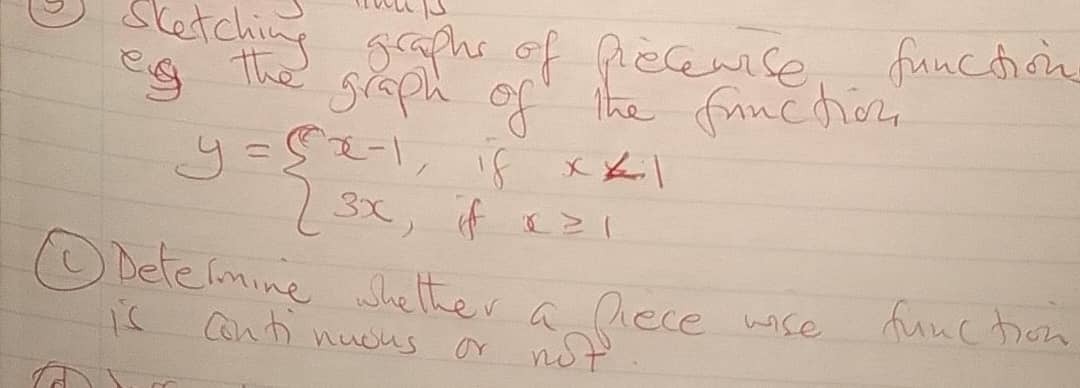 Sketching graphs of Piecewise function
eg the graph of the function
y = { x-1, if x < 1
3x, if x ≥ 1
(c) Determine whether a Piece wise function
is conti nuous or not.